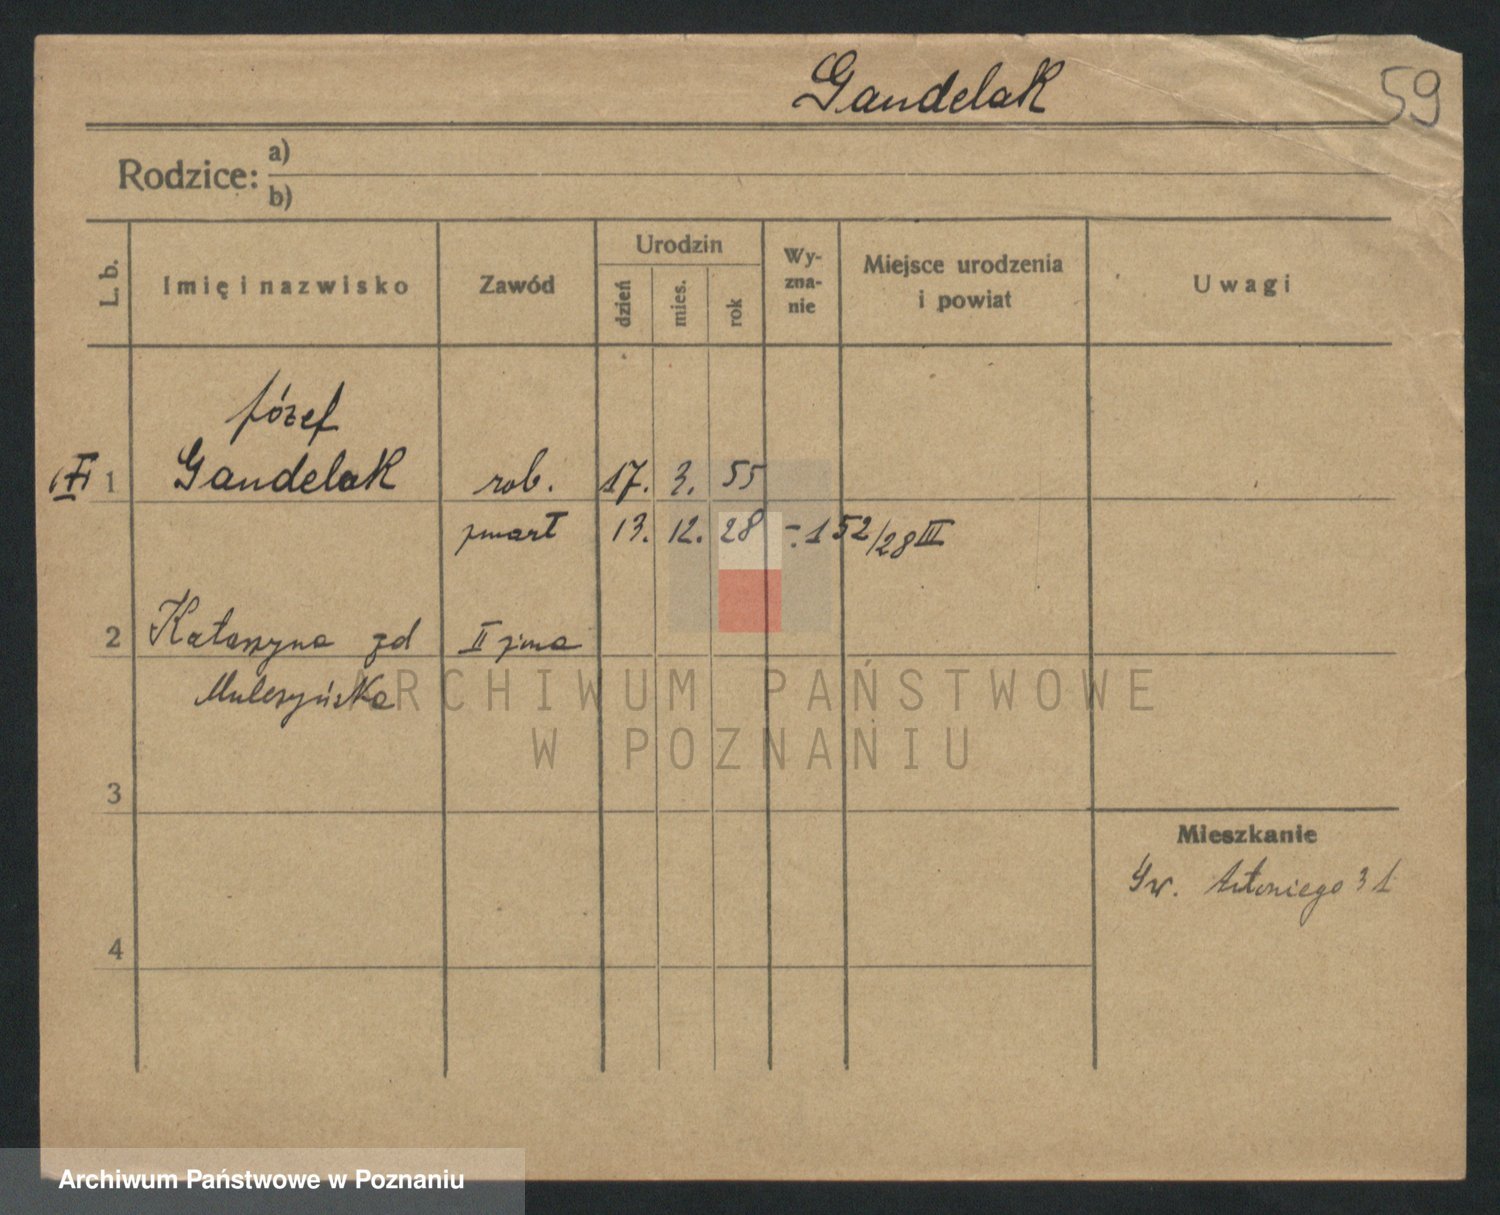 Gandelak
59
Rodzice: a)
b)
L. b.
Imię i nazwisko
Zawód
Urodzin
dzień
mies.
rok
Wy-
zna-
nie
Miejsce urodzenia
i powiat
Uwagi
Józef
1 Gandelak rob. 17. 3. 55
zmarł 13. 12. 28 152/28 III
2 Katarzyna zd II żona
3
Mieszkanie
Św. Antoniego 31
4
ARCHIWUM PAŃSTWOWE
W POZNANIU
Archiwum Państwowe w Poznaniu